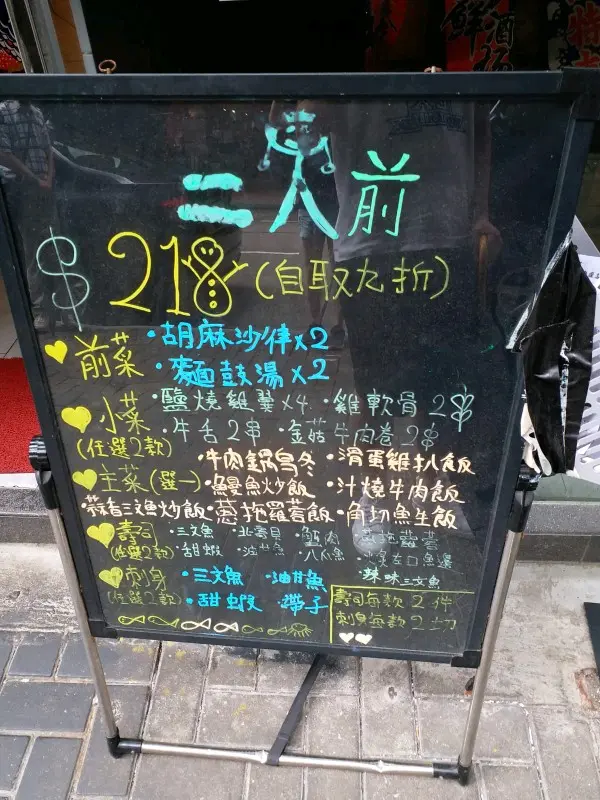 二人前
$218 (自取九折)
前菜 ·胡麻沙律x2
·麵豉湯x2
小菜 (任選2款) ·鹽燒雞翼x4 ·雞軟骨2串
·牛舌2串 ·金菇牛肉卷2串
主菜 (選一) ·牛肉鍋烏冬 ·滑蛋雞扒飯
·鰻魚炒飯 ·汁燒牛肉飯
蒜香三文魚炒飯 ·蔥拖羅蓉飯 ·角切魚生飯
壽司 (任選2款) ·三文魚 ·北寄貝 ·蔥拖羅蓉
·甜蝦 ·油甘魚 ·八爪魚
·辣味三文魚
刺身 (任選2款) ·三文魚 ·油甘魚
·甜蝦 ·帶子
壽司每款2件
刺身每款2切